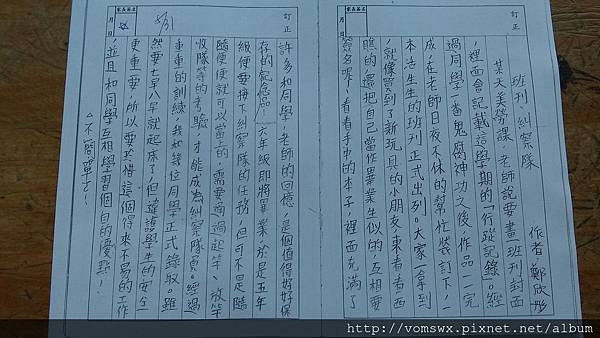 訂正
家長簽名
月 日
班刊、糾察隊
作者 鄭欣彤
某天美勞課,老師說要畫班刊封面
,裡面會記載這學期的行蹤記錄。經
過同學一番鬼斧神功之後,作品一一完
成,在老師日夜不休的幫忙裝訂下,一
本活生生的班刊正式出列。大家一拿到
,就像買到了新玩具的小朋友,東看看西
瞧瞧,還把自己當作畢業生似的,互相要
簽名呢!看看手中的本子,裡面充滿了
訂正
家長簽名
月 日
5/31
許多和同學、老師的回憶,是個值得好好保
存的紀念品!六年級即將畢業,於是五年
級便要接下糾察隊的任務,但可不是隨
隨便便就可以當上的,需要通過起竿、放竿
、收隊等的考驗,才能成為糾察隊員。經過
重重的訓練,我和幾位同學正式錄取。雖
然要七早八早就起床了,但維護學生的安全
更重要,所以要珍惜這個得來不易的工作
,並且和同學互相學習個自的優點!
△不簡單了!
http://vomswx.pixnet.net/album